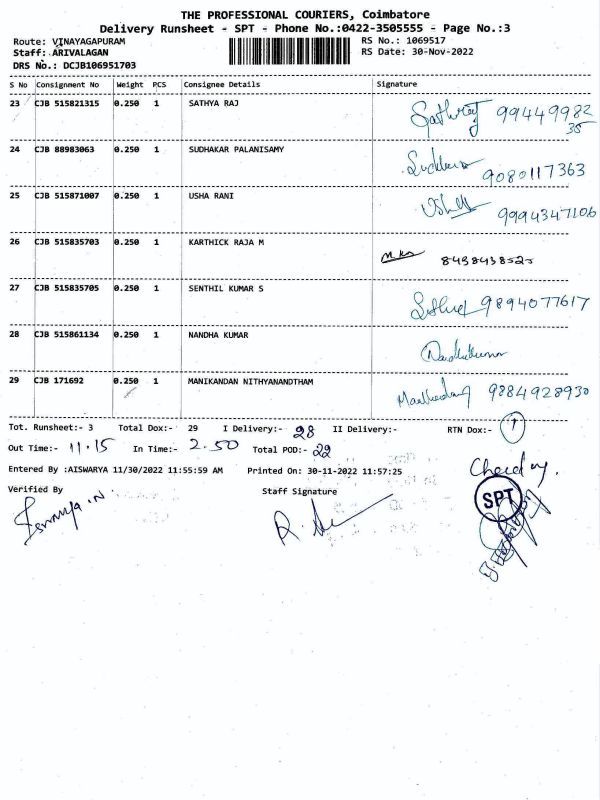 THE PROFESSIONAL COURIERS, Coimbatore
Delivery Runsheet - SPT - Phone No.:0422-3505555 - Page No.:3
Route: VINAYAGAPURAM RS No.: 1069517
Staff: ARIVALAGAN RS Date: 30-Nov-2022
DRS No.: DCJB106951703
S No Consignment No Weight PCS Consignee Details Signature
23 CJB 515821315 0.250 1 SATHYA RAJ Sathyraj 9944998235
24 CJB 88983063 0.250 1 SUDHAKAR PALANISAMY 9080117363
25 CJB 515871007 0.250 1 USHA RANI 9994347106
26 CJB 515835703 0.250 1 KARTHICK RAJA M 8438438525
27 CJB 515835705 0.250 1 SENTHIL KUMAR S 9894077617
28 CJB 515861134 0.250 1 NANDHA KUMAR Nandhakumar
29 CJB 171692 0.250 1 MANIKANDAN NITHYANANDTHAM 9884928930
Tot. Runsheet:- 3 Total Dox:- 29 I Delivery:- 28 II Delivery:- RTN Dox:- 1
Out Time:- 11.15 In Time:- 2.50 Total POD:- 29
Entered By :AISWARYA 11/30/2022 11:55:59 AM Printed On: 30-11-2022 11:57:25
Verified By Staff Signature
SPT